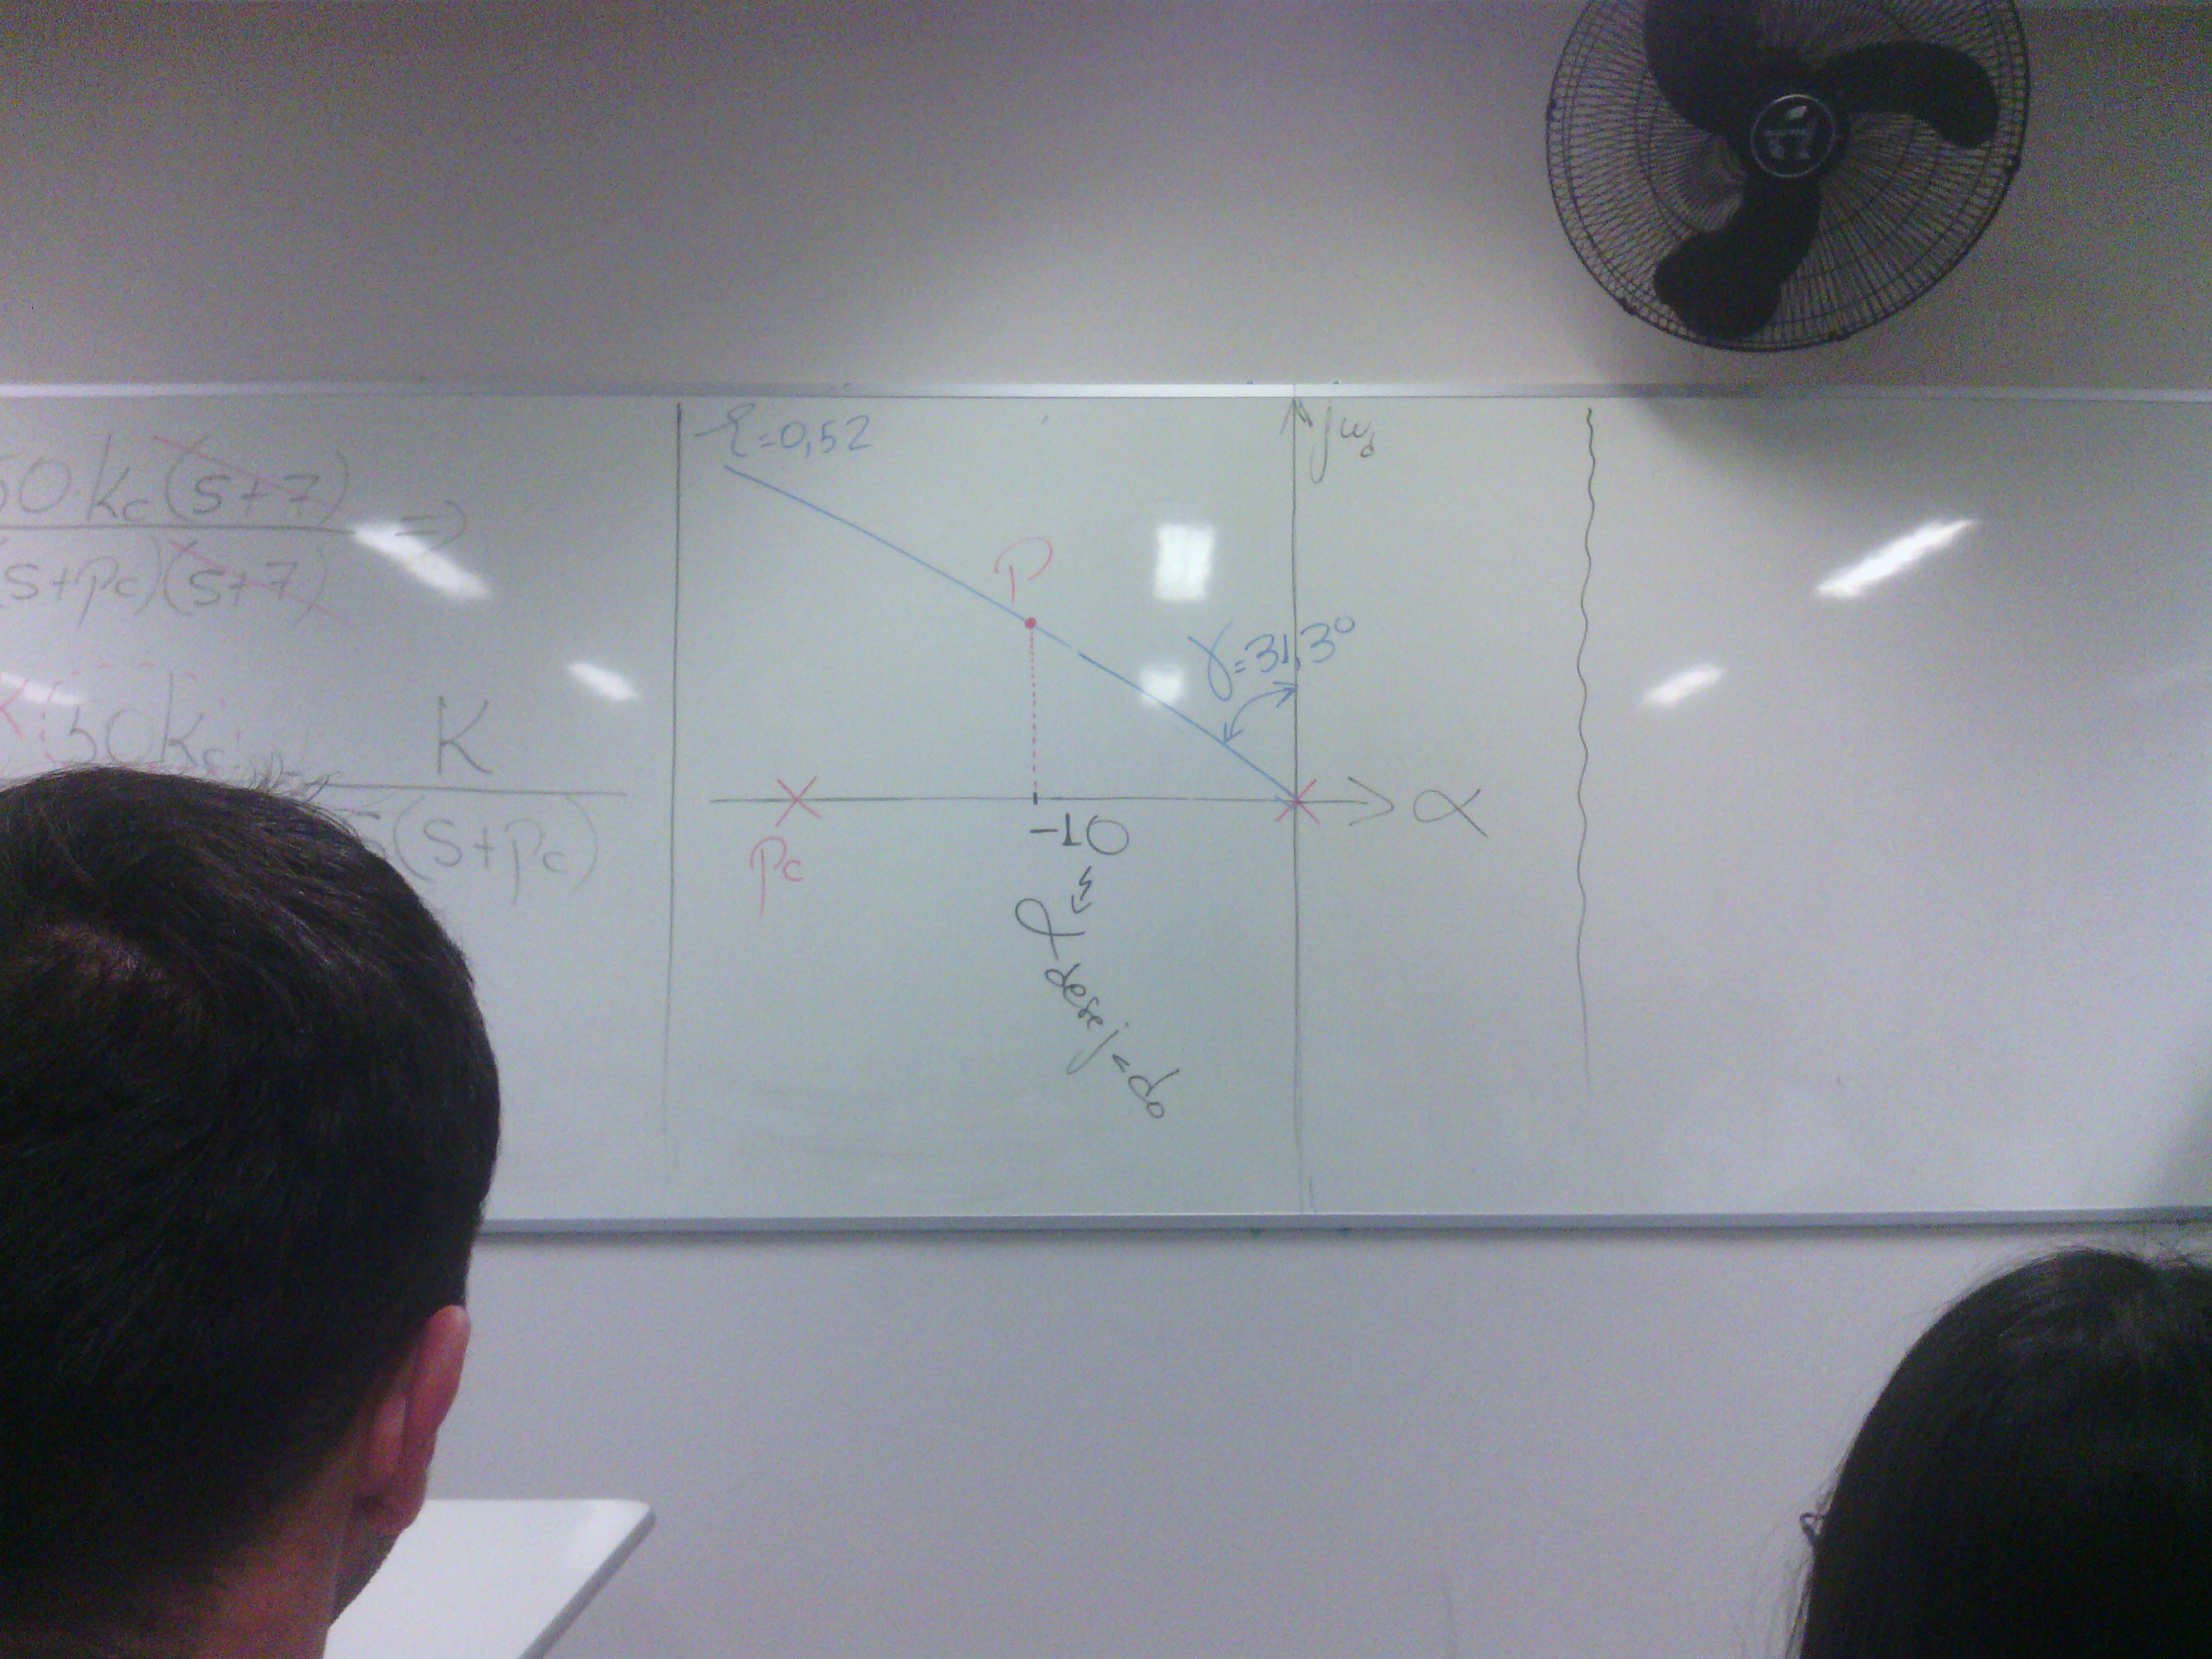 50·Kc(s+7) =>
(s+pc)(s+7)
50Kc
K
s(s+pc)
ξ=0,52
jωd
P
γ=31,3°
α
pc
-10
α desejado